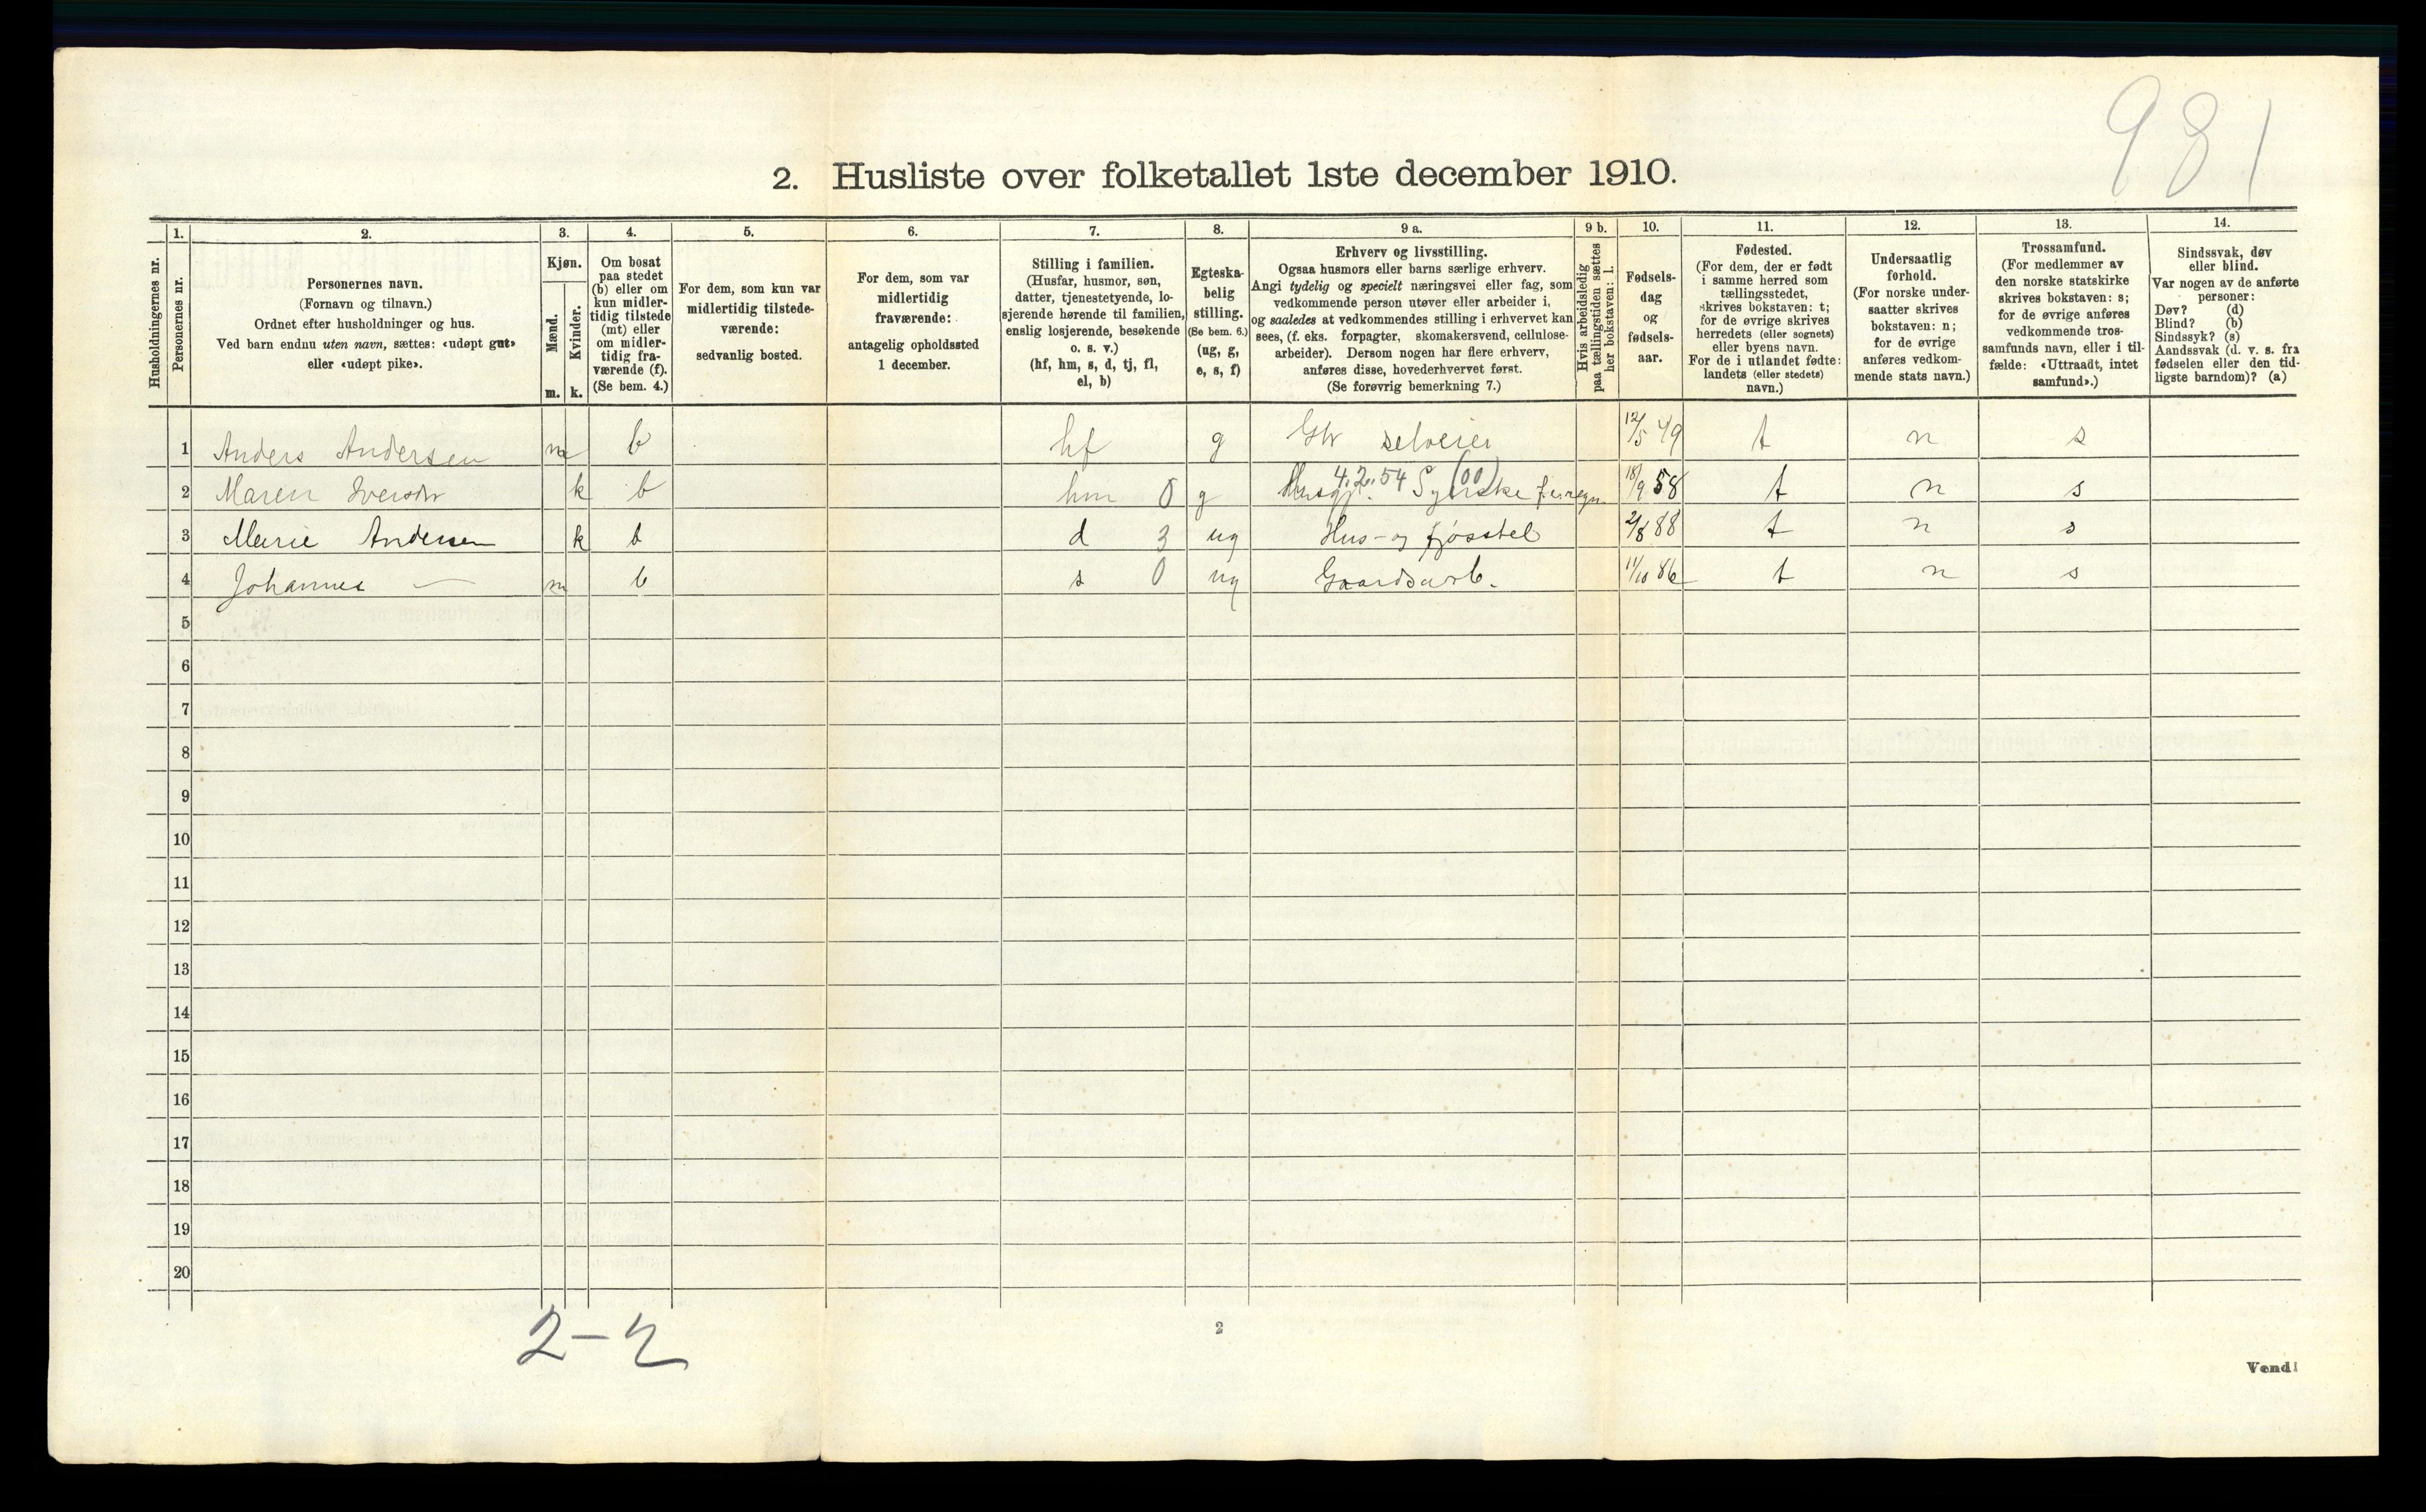 981
2. Husliste over folketallet 1ste december 1910.
Husholdningernes nr.
1.
Personernes nr.
2.
Personernes navn.
(Fornavn og tilnavn.)
Ordnet efter husholdninger og hus.
Ved barn endnu uten navn, sættes: «udøpt gut»
eller «udøpt pike».
3.
Kjøn.
Mænd.
Kvinder.
m. k.
4.
Om bosat
paa stedet
(b) eller om
kun midler-
tidig tilstede
(mt) eller
om midler-
tidig fra-
værende (f).
(Se bem. 4.)
5.
For dem, som kun var
midlertidig tilstede-
værende:
sedvanlig bosted.
6.
For dem, som var
midlertidig
fraværende:
antagelig opholdssted
1 december.
7.
Stilling i familien.
(Husfar, husmor, søn,
datter, tjenestetyende, lo-
sjerende hørende til familien,
enslig losjerende, besøkende
o. s. v.)
(hf, hm, s, d, tj, fl,
el, b)
8.
Egteska-
belig
stilling.
(Se bem. 6.)
(ug, g,
e, s, f)
9 a.
Erhverv og livsstilling.
Ogsaa husmors eller barns særlige erhverv.
Angi tydelig og specielt næringsvei eller fag, som
vedkommende person utøver eller arbeider i,
og saaledes at vedkommendes stilling i erhvervet kan
sees, (f. eks. forpagter, skomakersvend, cellulose-
arbeider). Dersom nogen har flere erhverv,
anføres disse, hovederhvervet først.
(Se forøvrig bemerkning 7.)
9 b.
Hvis arbeidsledig
paa tællingstiden sættes
her bokstaven: l.
10.
Fødsels-
dag
og
fødsels-
aar.
11.
Fødested.
(For dem, der er født
i samme herred som
tællingsstedet,
skrives bokstaven: t;
for de øvrige skrives
herredets (eller sognets)
eller byens navn.
For de i utlandet fødte:
landets (eller stedets)
navn.)
12.
Undersaatlig
forhold.
(For norske under-
saatter skrives
bokstaven: n;
for de øvrige
anføres vedkom-
mende stats navn.)
13.
Trossamfund.
(For medlemmer av
den norske statskirke
skrives bokstaven: s;
for de øvrige anføres
vedkommende tros-
samfunds navn, eller i til-
fælde: «Uttraadt, intet
samfund».)
14.
Sindssvak, døv
eller blind.
Var nogen av de anførte
personer:
Døv? (d)
Blind? (b)
Sindssyk? (s)
Aandssvak (d. v. s. fra
fødselen eller den tid-
ligste barndom)? (a)
1 Anders Andersen m b hf g Gbr selveier 12/5 49 t n s
4.2.54 (00)
2 Maren k b hm 0 g 18/9 58 t n s
3 Marie Andersen k b d 3 ug Hus- og fjøsstel 2/8 88 t n s
4 Johannes — m b s 0 ug Gaardsarb. 11/10 86 t n s
5
6
7
8
9
10
11
12
13
14
15
16
17
18
19
20
2-2
2
Vend!